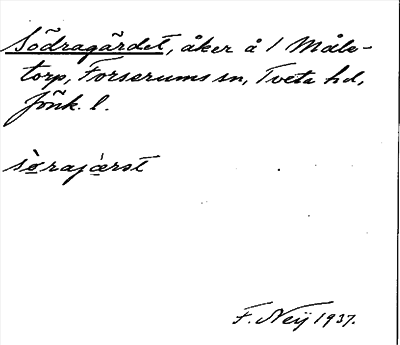 Södragärdet, åker å 1 Måle-
torp, Forserums sn, Tveta hd,
Jönk. l.
sòrajárst
F. Neij 1937.